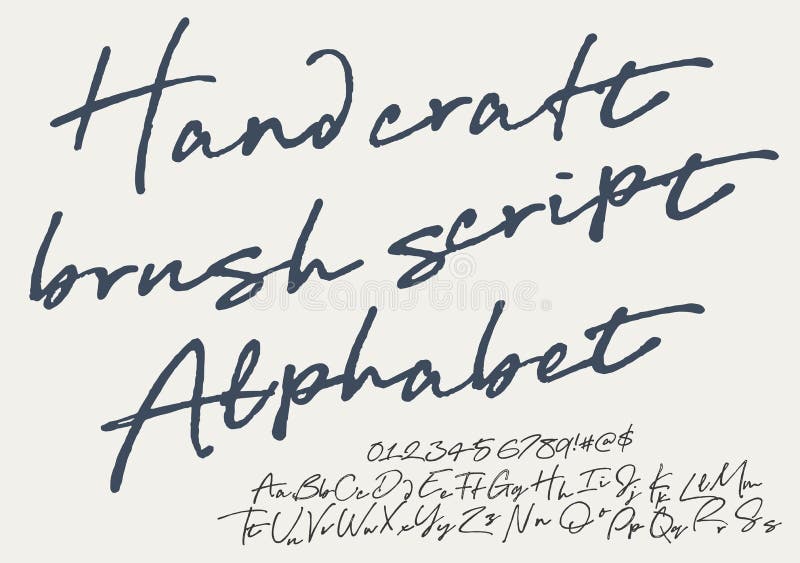 Handcraft
brush script
Alphabet
0123456789!#@$
AaBbCcDdEeFfGgHhIiJjKkLlMm
TtUuVvWwXxYyZzNnOoPpQqRrSs
dreamstime